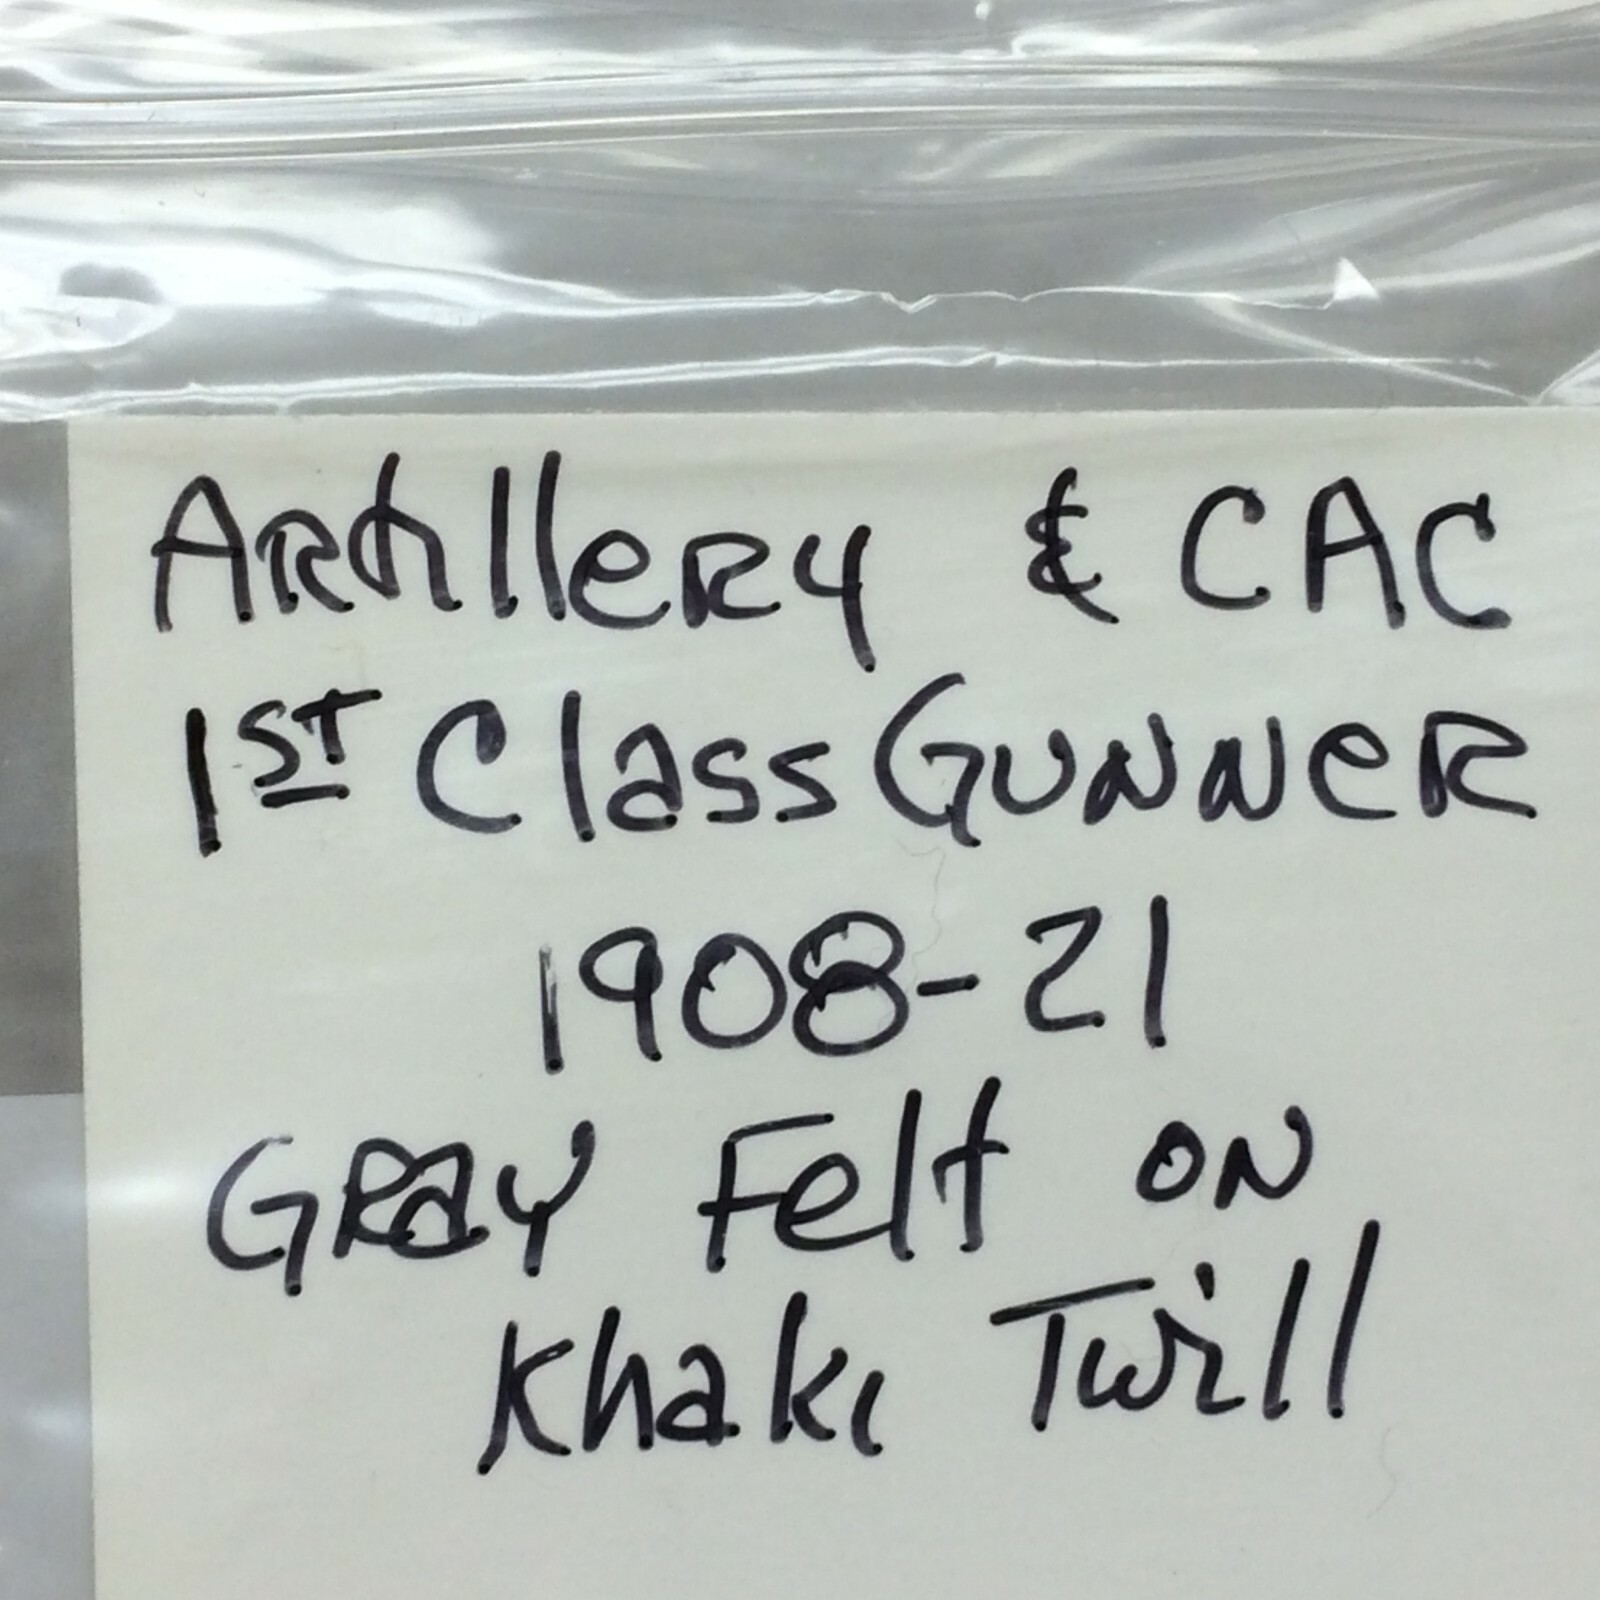 Artillery & CAC
1st Class Gunner
1908-21
Gray Felt on
Khaki Twill